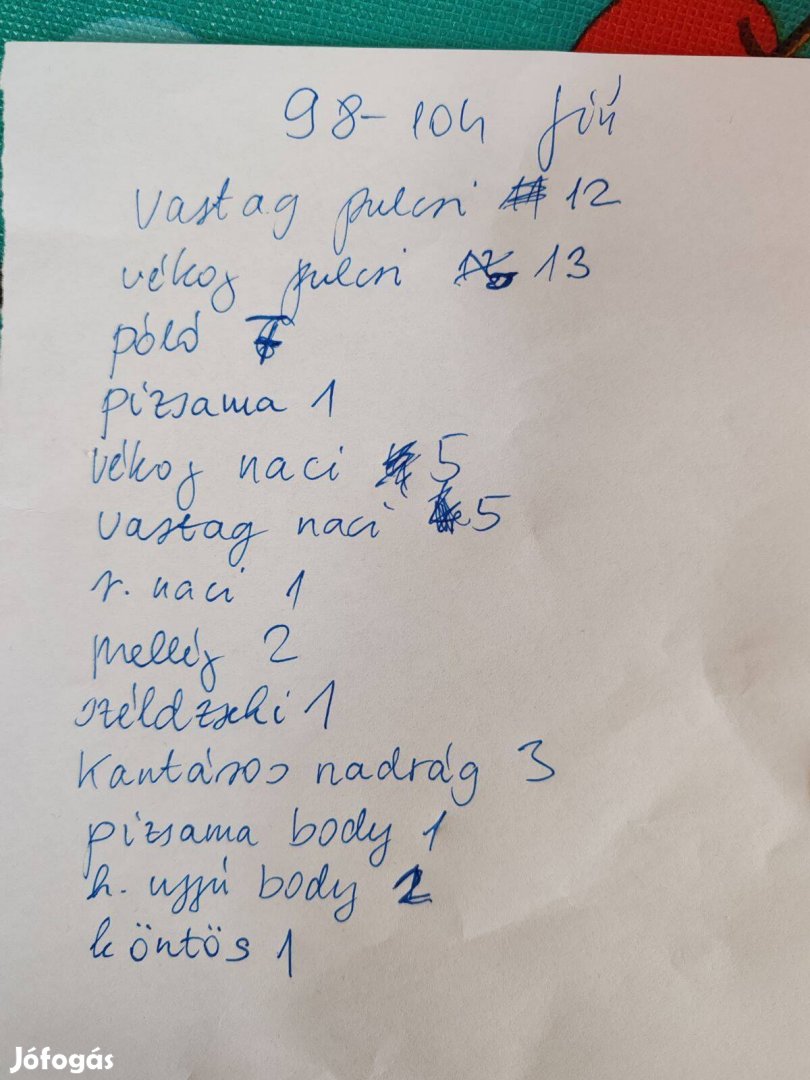 98-104 fiú
Vastag pulcsi 12
vékoj pulcsi 13
póló
pizsama 1
vékoj naci 5
vastag naci 5
r. naci 1
melléj 2
széldzseki 1
Kantáros nadrág 3
pizsama body 1
h. ujjú body 2
köntös 1
Jófogás